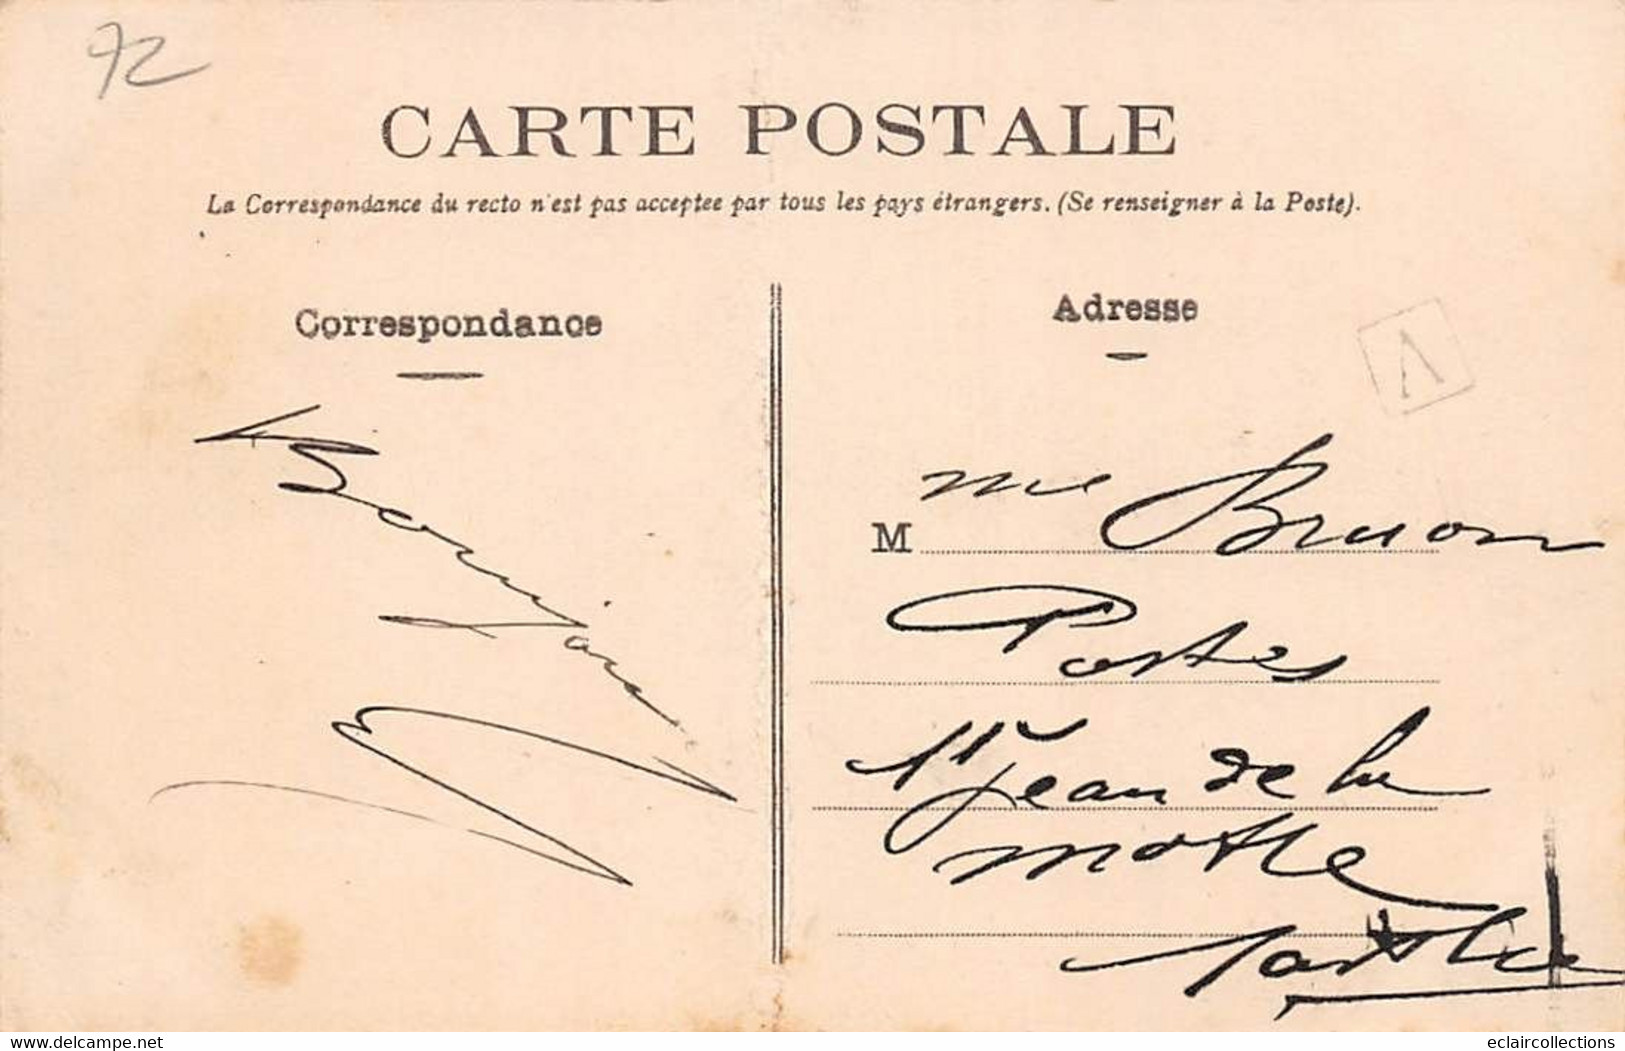 72
CARTE POSTALE
La Correspondance du recto n'est pas acceptee par tous les pays étrangers. (Se renseigner à la Poste).
Correspondance
Adresse
A
M me Bruon
Postes
St Jean de la
Motte
Sarthe
www.delcampe.net
eclaircollections